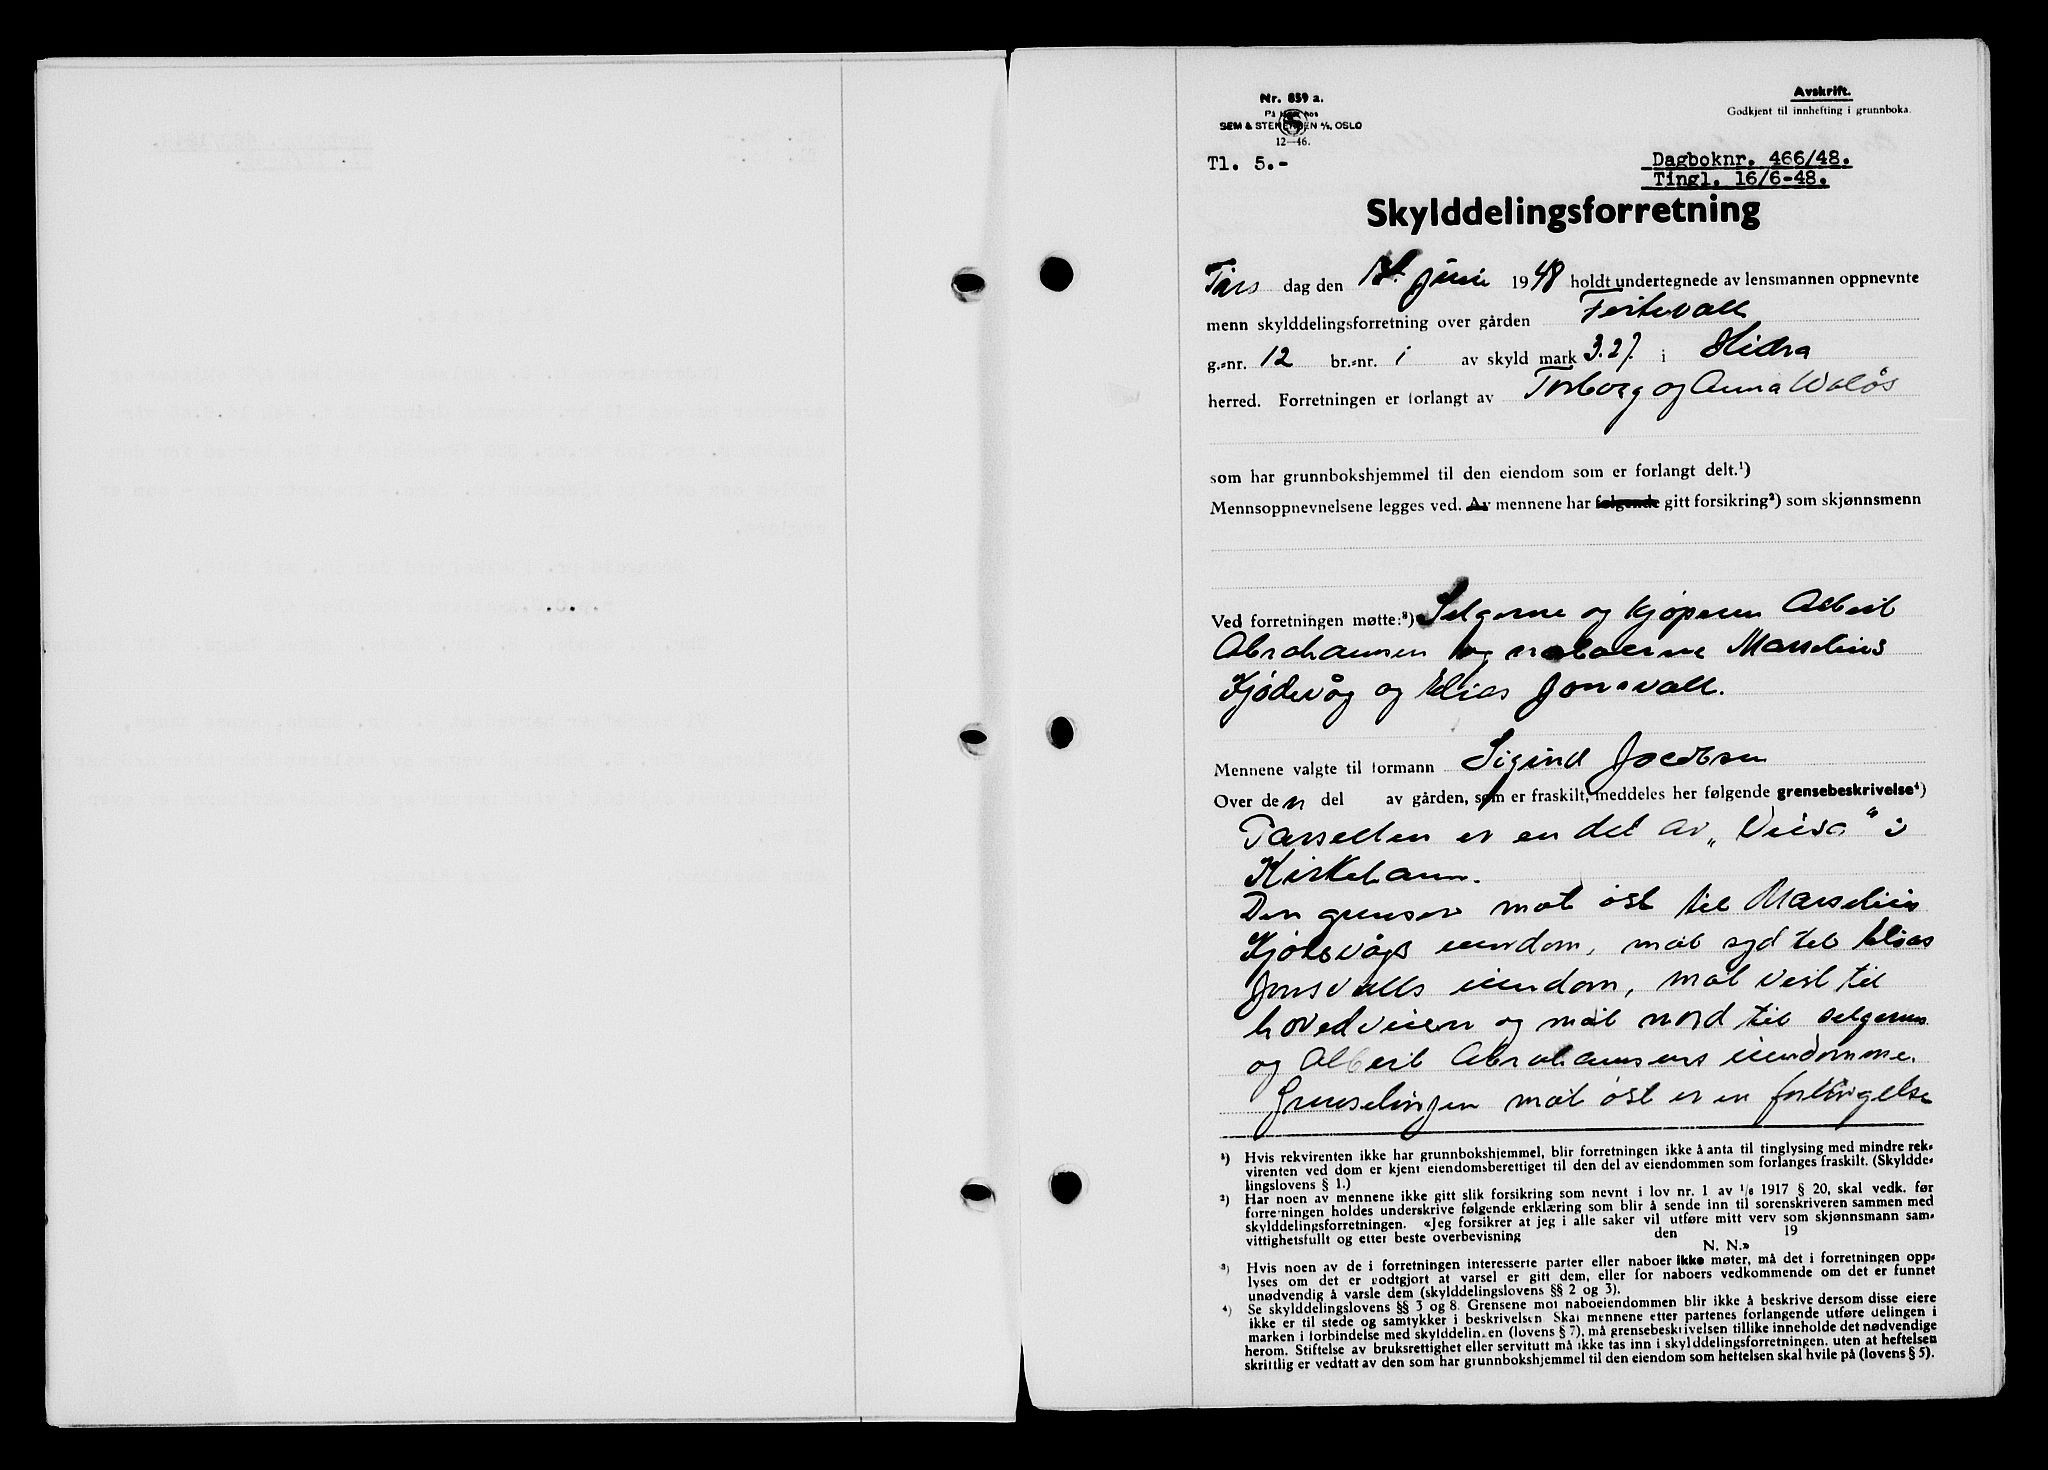 Nr. 859 a.
På lager hos
SEM & STENERSEN A/S, OSLO
12—46.
Avskrift.
Godkjent til innhefting i grunnboka.
Tl. 5.-
Dagboknr. 466/48.
Tingl. 16/6-48.
Skylddelingsforretning
Tirs dag den 14. juni 1948 holdt undertegnede av lensmannen oppnevnte
menn skylddelingsforretning over gården
g.-nr. 12 br.-nr. 1 av skyld mark 3.27. i Hidra
herred. Forretningen er forlangt av Torborg og Anna Waløs
som har grunnbokshjemmel til den eiendom som er forlangt delt.¹)
Mennsoppnevnelsene legges ved. Av mennene har følgende gitt forsikring²) som skjønnsmenn
Ved forretningen møtte:³) Selgerne og kjøperen Albert
Abrahamsen og naboerne Marselius
Kjødevåg og Elias Jonsvall.
Mennene valgte til formann Sigurd Jacobsen
Over den del av gården, som er fraskilt, meddeles her følgende grensebeskrivelse⁴)
Parsellen er en del av „ " i
Kirkehavn.
Den grenser mot øst til Marselius
eiendom, mot syd til Elias
Jonsvalls eiendom, mot vest til
hovedveien og mot nord til selgernes
og Albert Abrahamsens eiendomme.
Grenselinjen mot øst er en forlengelse
¹) Hvis rekvirenten ikke har grunnbokshjemmel, blir forretningen ikke å anta til tinglysing med mindre rek-
virenten ved dom er kjent eiendomsberettiget til den del av eiendommen som forlanges fraskilt. (Skyldde-
lingslovens § 1.)
²) Har noen av mennene ikke gitt slik forsikring som nevnt i lov nr. 1 av 1/6 1917 § 20, skal vedk. før
forretningen holdes underskrive følgende erklæring som blir å sende inn til sorenskriveren sammen med
skylddelingsforretningen. «Jeg forsikrer at jeg i alle saker vil utføre mitt verv som skjønnsmann sam-
vittighetsfullt og etter beste overbevisning den 19
N. N.»
³) Hvis noen av de i forretningen interesserte parter eller naboer ikke møter, må det i forretningen opp-
lyses om det er godtgjort at varsel er gitt dem, eller for naboers vedkommende om det er funnet
unødvendig å varsle dem (skylddelingslovens §§ 2 og 3).
⁴) Se skylddelingslovens §§ 3 og 8. Grensene mot naboeiendommen blir ikke å beskrive dersom disse eiere
ikke er til stede og samtykker i beskrivelsen. Skal mennene etter partenes forlangende utføre delingen i
marken i forbindelse med skylddelingen (lovens § 7), må grensebeskrivelsen tillike inneholde det nødvendige
herom. Stiftelse av bruksrettighet eller servitutt må ikke tas inn i skylddelingsforretningen, uten at heftelsen
skriftlig er vedtatt av den som har grunnbokshjemmel til den eiendom som heftelsen skal hvile på (lovens § 5).